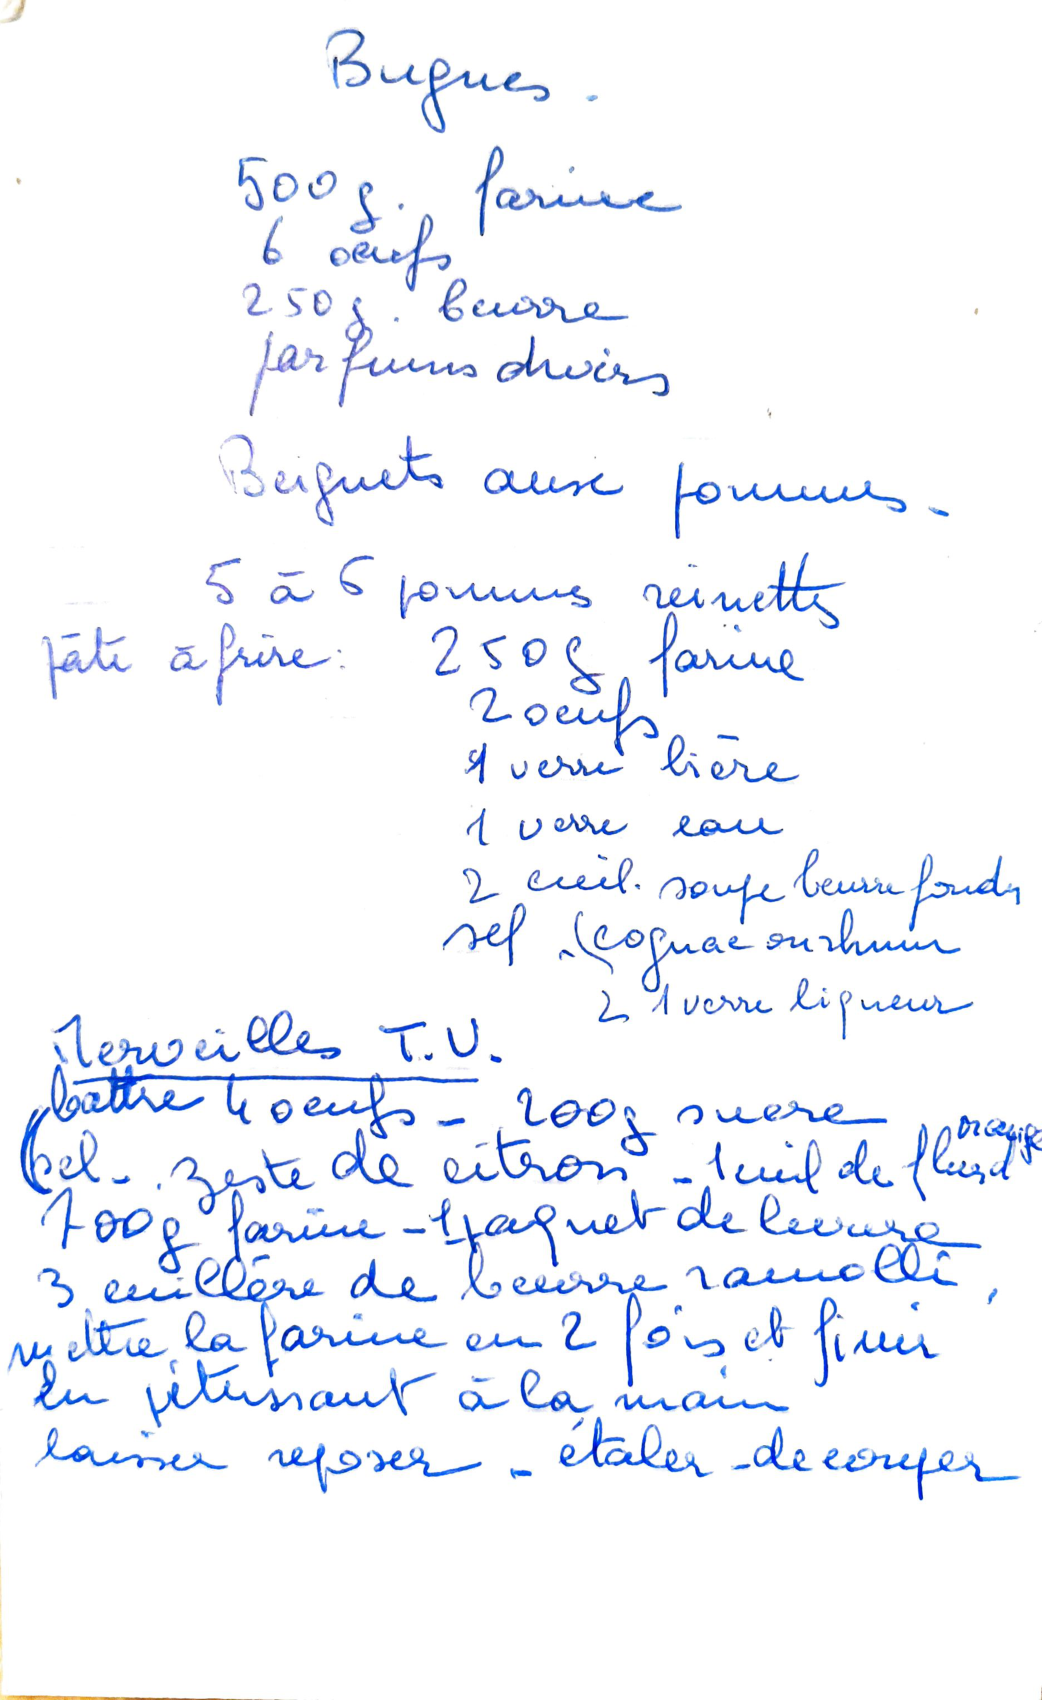 Bugnes.
500g. farine
6 oeufs
250g. beurre
parfums divers
Beignets aux pommes.
5 à 6 pommes reinettes
pâte à frire: 250g farine
2 oeufs
1 verre bière
1 verre eau
2 cuil. soupe beurre fondu
sel. (cognac ou rhum
2 1 verre liqueur
Merveilles T.V.
battre 4 oeufs - 200g sucre
(sel - zeste de citron - 1 cuil de fleur d'oranger
700g farine - 1 paquet de levure
3 cuillère de beurre ramolli,
mettre la farine en 2 fois et finir
en pétrissant à la main
laisser reposer - étaler - decouper